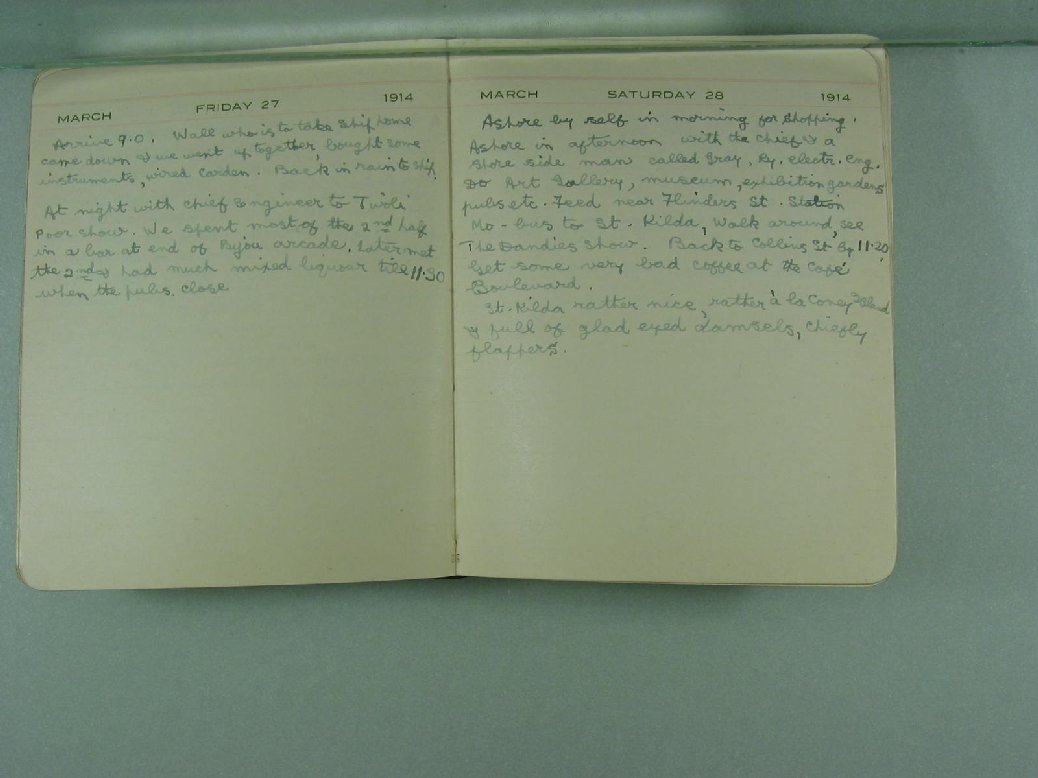 MARCH FRIDAY 27 1914
Arrive 9.0. Wall who is to take ship home
came down & we went up together, bought some
instruments, wired Carden. Back in rain to ship.
At night with chief Engineer to Tivoli
Poor show. We spent most of the 2nd half
in a bar at end of Byou arcade. Later met
the 2nd & had much mixed liquour till 11.30
when the pubs. close
MARCH SATURDAY 28 1914
Ashore by self in morning for shopping.
Ashore in afternoon with the chief & a
shore side man called Gray, Ry. electr. eng.
Do Art Gallery, museum, exhibition gardens
pubs etc. Feed near Flinders St. Station
Mo-bus to St. Kilda, walk around, see
The Dandies Show. Back to Collins St by 11.20
Get some very bad coffee at the Café
Boulevard.
St. Kilda rather nice, rather à la Coney Island
& full of glad eyed damsels, chiefly
flappers.